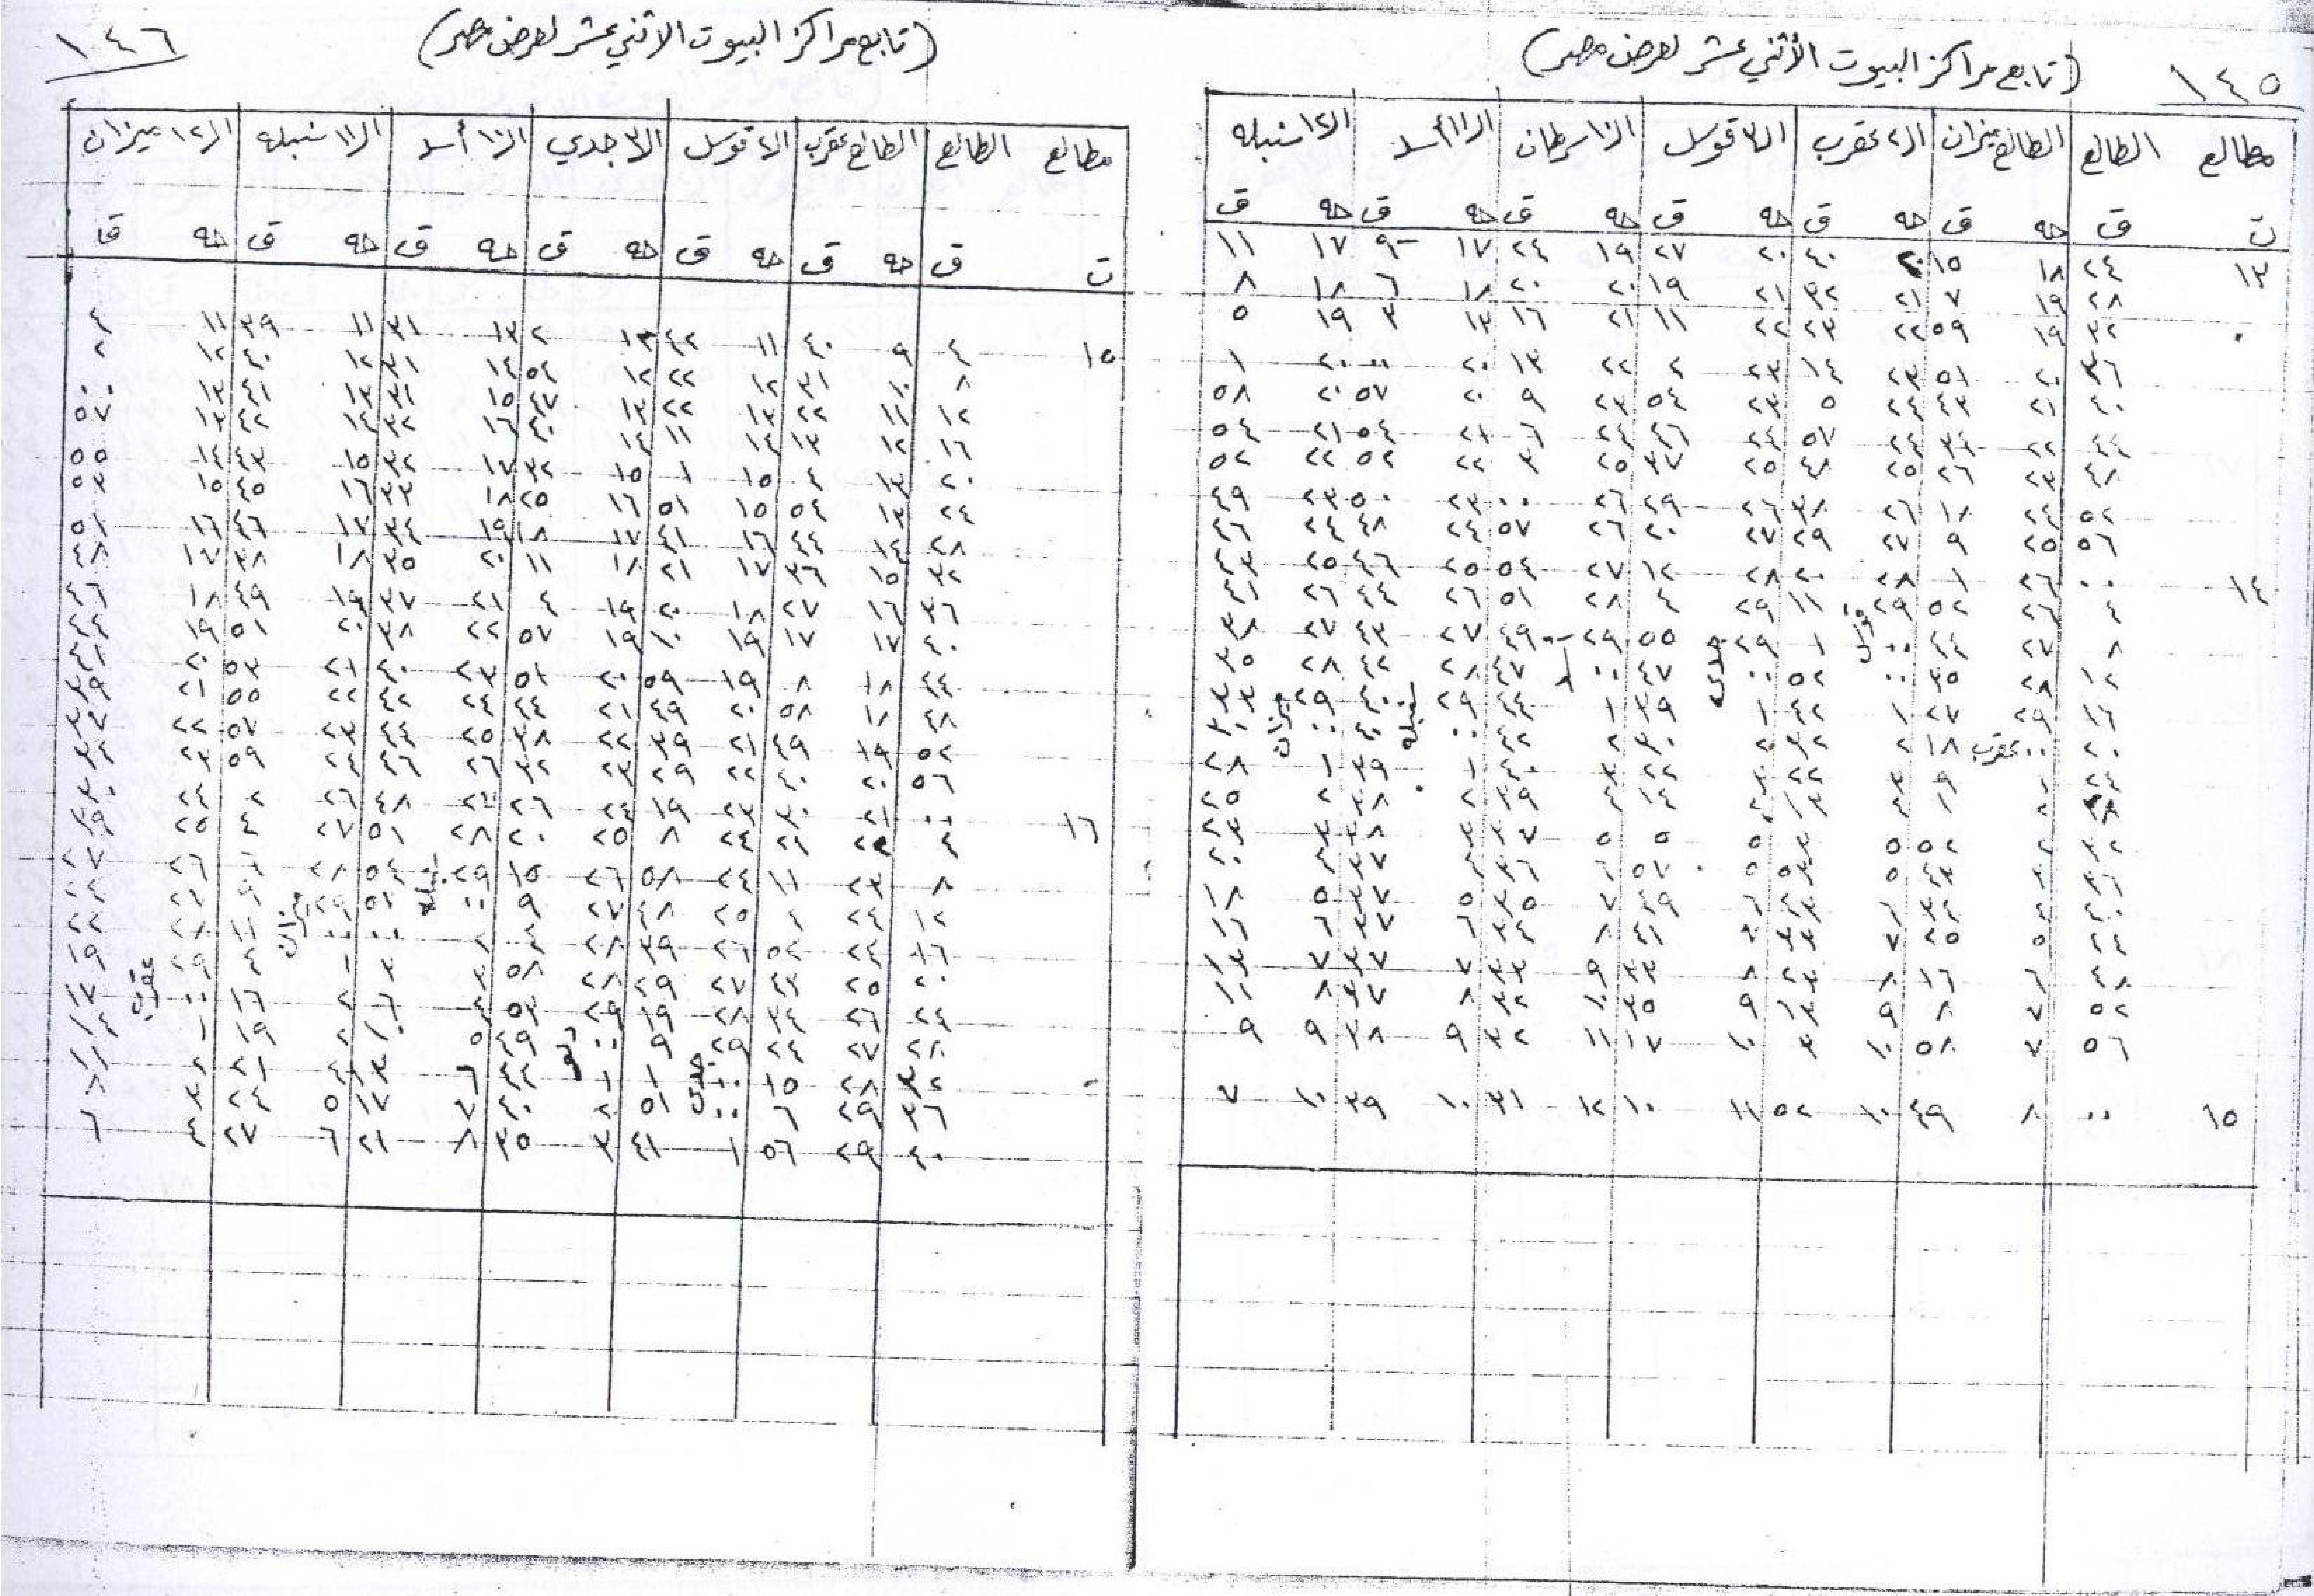 ١٤٥
(تابع مراكز البيوت الأثني عشر لعرض مصر)
مطالع الطالع الطالع ميزان ال٢ عقرب ال٣ قوس ال١٠ سرطان ال١١ أسد ال١٢ سنبله
ت ق حه ق حه ق حه ق حه ق حه ق حه ق
١٣ ٢٤ ١٨ ١٥ ٢٠ ٤٠ ٢٠ ٢٧ ١٩ ٢٤ ١٧ ٩ ١٧ ١١
٢٨ ١٩ ٧ ٢١ ٣٢ ٢١ ١٩ ٢٠ ٢٠ ١٨ ٦ ١٨ ٨
٣٢ ١٩ ٥٩ ٢٢ ٢٣ ٢٢ ١١ ٢١ ١٦ ١٣ ٣ ١٩ ٥
٣٦ ٢٠ ٥١ ٢٣ ١٤ ٢٣ ٢ ٢٢ ١٣ ٢٠ ٠٠ ٢٠ ١
٤٠ ٢١ ٤٣ ٢٤ ٥ ٢٣ ٥٤ ٢٣ ٩ ٢٠ ٥٧ ٢٠ ٥٨
٤٤ ٢٢ ٣٤ ٢٤ ٥٧ ٢٤ ٤٦ ٢٤ ٦ ٢١ ٥٤ ٢١ ٥٤
٤٨ ٢٣ ٢٦ ٢٥ ٤٨ ٢٥ ٣٧ ٢٥ ٣ ٢٢ ٥٢ ٢٢ ٥٢
٥٢ ٢٤ ١٨ ٢٦ ٣٨ ٢٦ ٢٩ ٢٦ ٠٠ ٢٣ ٥٠ ٢٣ ٤٩
٥٦ ٢٥ ٩ ٢٧ ٢٩ ٢٧ ٢٠ ٢٦ ٥٧ ٢٤ ٤٨ ٢٤ ٤٦
١٤ ٠٠ ٢٦ ١ ٢٨ ٢٠ ٢٨ ١٢ ٢٧ ٥٤ ٢٥ ٤٦ ٢٥ ٤٣
٤ ٢٦ ٥٢ ٢٩ ١١ ٢٩ ٤ ٢٨ ٥١ ٢٦ ٤٤ ٢٦ ٤١
٨ ٢٧ ٤٤ ٠٠ قوس ١ ٢٩ ٥٥ ٢٩ ٤٩ ٢٧ ٤٣ ٢٧ ٣٨
١٢ ٢٨ ٣٥ ٠٠ ٥٢ ٠٠ جدي ٤٧ ٠٠ أسد ٤٧ ٢٨ ٤٢ ٢٨ ٣٥
١٦ ٢٩ ٢٧ ١ ٤٢ ١ ٣٩ ١ ٤٤ ٢٩ ٤٠ ٢٩ ٣٣
٢٠ ٠٠ عقرب ١٨ ٢ ٣٢ ٢ ٣٠ ٢ ٤٢ ٠٠ سنبله ٤٠ ٠٠ ميزان ٣٠
٢٤ ١ ٩ ٣ ٢٢ ٣ ٢٢ ٣ ٤٠ ١ ٣٩ ١ ٢٨
٢٨ ٢ ١ ٤ ١٣ ٤ ١٤ ٤ ٣٩ ٢ ٣٨ ٢ ٢٥
٣٢ ٢ ٥٢ ٥ ٣ ٥ ٥ ٥ ٣٧ ٣ ٣٨ ٣ ٢٣
٣٦ ٣ ٤٣ ٥ ٥٣ ٥ ٥٧ ٦ ٣٦ ٤ ٣٧ ٤ ٢٠
٤٠ ٤ ٣٤ ٦ ٤٣ ٦ ٤٩ ٧ ٣٥ ٥ ٣٧ ٥ ١٨
٤٤ ٥ ٢٥ ٧ ٣٣ ٧ ٤١ ٨ ٣٤ ٦ ٣٧ ٦ ١٦
٤٨ ٦ ١٦ ٨ ٢٣ ٨ ٣٣ ٩ ٣٣ ٧ ٣٧ ٧ ١٣
٥٢ ٧ ٨ ٩ ١٣ ٩ ٣٥ ١٠ ٣٢ ٨ ٣٧ ٨ ١١
٥٦ ٧ ٥٨ ١٠ ٣ ١٠ ١٧ ١١ ٣٢ ٩ ٣٨ ٩ ٩
١٥ ٠٠ ٨ ٤٩ ١٠ ٥٢ ١١ ١٠ ١٢ ٣١ ١٠ ٣٩ ١٠ ٧
١٤٦
(تابع مراكز البيوت الاثني عشر لعرض مصر)
مطالع الطالع الطالع عقرب ال٢ قوس ال٣ جدي ال١٠ أسد ال١١ سنبله ال١٢ ميزان
ت ق حه ق حه ق حه ق حه ق حه ق حه ق
١٥ ٤ ٩ ٤٠ ١١ ٤٢ ١٢ ٢ ١٣ ٣١ ١١ ٣٩ ١١ ٤
٨ ١٠ ٣١ ١٢ ٢٢ ١٢ ٥٤ ١٤ ٣١ ١٢ ٤٠ ١٢ ٢
١٢ ١١ ٢٢ ١٣ ٢٢ ١٣ ٤٧ ١٥ ٣١ ١٣ ٤١ ١٣ ٠٠
١٦ ١٢ ١٣ ١٤ ١١ ١٤ ٤٠ ١٦ ٣٢ ١٤ ٤٢ ١٣ ٥٧
٢٠ ١٣ ٤ ١٥ ١ ١٥ ٣٢ ١٧ ٣٢ ١٥ ٤٣ ١٤ ٥٥
٢٤ ١٣ ٥٤ ١٥ ٥١ ١٦ ٢٥ ١٨ ٣٣ ١٦ ٤٥ ١٥ ٥٣
٢٨ ١٤ ٤٤ ١٦ ٤١ ١٧ ١٨ ١٩ ٣٤ ١٧ ٤٦ ١٦ ٥١
٣٢ ١٥ ٣٦ ١٧ ٢١ ١٨ ١١ ٢٠ ٣٥ ١٨ ٣٨ ١٧ ٤٨
٣٦ ١٦ ٢٧ ١٨ ٢٠ ١٩ ٤ ٢١ ٣٧ ١٩ ٤٩ ١٨ ٤٦
٤٠ ١٧ ١٧ ١٩ ١٠ ١٩ ٥٧ ٢٢ ٣٨ ٢٠ ٥١ ١٩ ٤٤
٤٤ ١٨ ٨ ١٩ ٥٩ ٢٠ ٥١ ٢٣ ٤٠ ٢١ ٥٣ ٢٠ ٤١
٤٨ ١٨ ٥٨ ٢٠ ٤٩ ٢١ ٤٤ ٢٤ ٤٢ ٢٢ ٥٥ ٢١ ٣٩
٥٢ ١٩ ٤٩ ٢١ ٣٩ ٢٢ ٣٨ ٢٥ ٤٤ ٢٣ ٥٧ ٢٢ ٣٧
٥٦ ٢٠ ٤٠ ٢٢ ٢٩ ٢٣ ٣٢ ٢٦ ٤٦ ٢٤ ٥٩ ٢٣ ٣٤
١٦ ٠٠ ٢١ ٣٠ ٢٣ ١٩ ٢٤ ٢٦ ٤٨ ٢٦ ٢ ٢٤
٤ ٢٢ ٢١ ٢٤ ٨ ٢٥ ٢٠ ٢٨ ٥١ ٢٧ ٤ ٢٥ ٢٩
٨ ٢٣ ١١ ٢٤ ٥٨ ٢٦ ١٥ ٢٩ ٥٤ ٢٨ ٦ ٢٦ ٢٧
١٢ ٢٤ ٢ ٢٥ ٤٨ ٢٧ ٩ ٠٠ سنبله ٥٢ ٢٩ ٩ ٢٧ ٢٤
١٦ ٢٤ ٥٢ ٢٦ ٣٩ ٢٨ ٤ ٢ ٠٠ ٠٠ ميزان ١١ ٢٨ ٢٢
٢٠ ٢٥ ٤٣ ٢٧ ٢٩ ٢٨ ٥٨ ٣ ٣ ١ ١٤ ٢٩ ١٩
٢٤ ٢٦ ٣٤ ٢٨ ١٩ ٢٩ ٥٣ ٤ ٦ ٢ ١٦ ٠٠ عقرب ١٧
٢٨ ٢٧ ٢٤ ٢٩ ٩ ٠٠ دلو ٤٩ ٥ ١٩ ١ ١٤
٣٢ ٢٨ ١٥ ٠٠ جدي ١ ١ ٤٤ ٦ ١٣ ٤ ٢١ ٢ ١١
٣٦ ٢٩ ٦ ٠٠ ٥١ ٢ ٤٠ ٧ ١٧ ٥ ٢٤ ٣ ٨
٤٠ ٢٩ ٥٦ ١ ٤١ ٣ ٣٥ ٨ ٢١ ٦ ٢٧ ٤ ٦